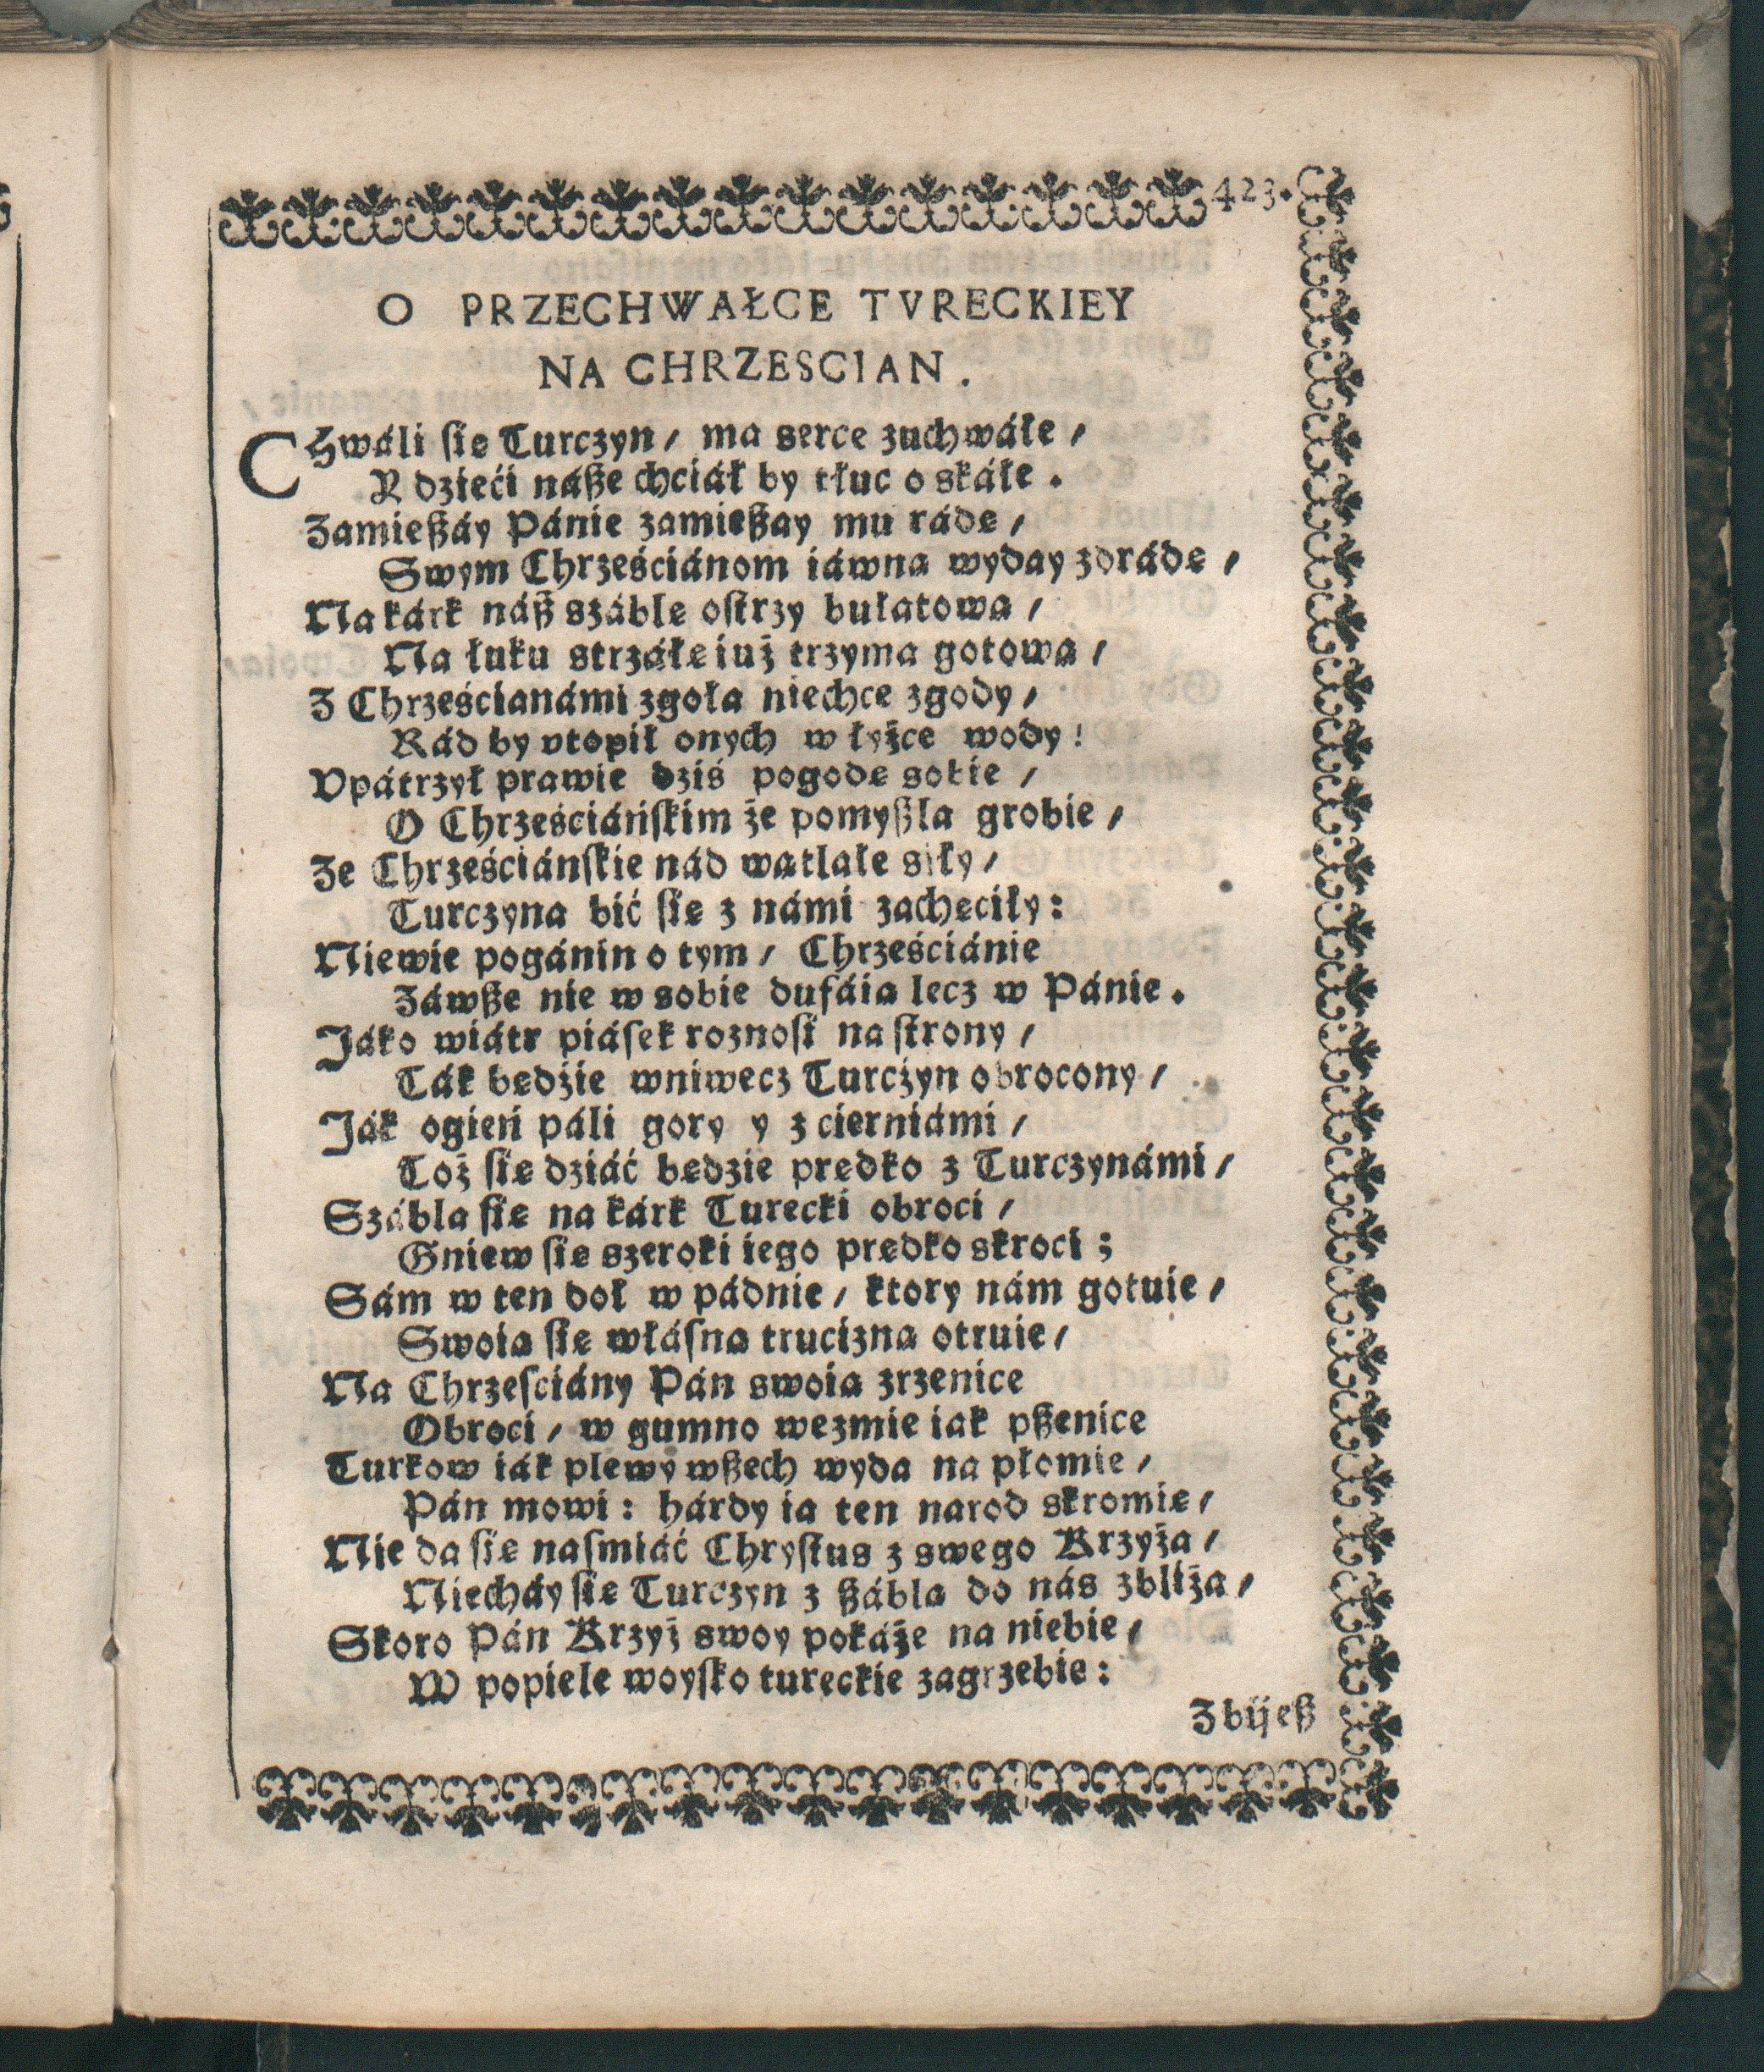 423.
O PRZECHWAŁCE TVRECKIEY
NA CHRZESCIAN.
CHwáli ſię Turczyn / ma serce zuchwáłe /
Y dzieći náße chciáł by tłuc o skáłę.
Zamießáy Pánie zamießay mu rádę /
Swym Chrześciánom iáwną wyday zdrádę /
Na kárk náß száblę oſtrzy bułatową /
Na łuku strzáłę iuż trzyma gotową /
Z Chrześcianámi zgoła niechce zgody /
Rád by vtopił onych w łyżce wody!
Vpátrzył prawie dziś pogodę sobie /
O Chrześciáńſkim że pomyßla grobie /
Ze Chrześciánſkie nád wątlałe siły /
Turczyna bić ſię z námi zachęciły:
Niewie pogánin o tym / Chrześciánie
Záwße nie w sobie dufáią lecz w Pánie.
Jáko wiátr piáſek roznoſi na ſtrony /
Ták będźie wniwecz Turcżyn obrocony /
Ják ogień páli gory y z cierniámi /
Toż ſię dziáć będzie prędko z Turczynámi /
Szábla ſię na kárk Turecki obroci /
Gniew ſię szeroki iego prędko skroci;
Sám w ten doł w pádnie / ktory nám gotuie /
Swoią ſię włáſną trucizną otruie /
Na Chrzeſciány Pán swoią zrzenicę
Obroci / w gumno wezmie iak pßenicę
Turkow iák plewy wßech wyda na płomie /
Pán mowi: hárdy ia ten narod skromię /
Nie da ſię naſmiáć Chryſtus z swego Krzyżá /
Niecháy ſię Turczyn z ßáblą do nás zbliża /
Skoro Pán Krzyż swoy pokáże na niebie /
W popiele woyſko tureckie zagrzebie:
Zbijeß